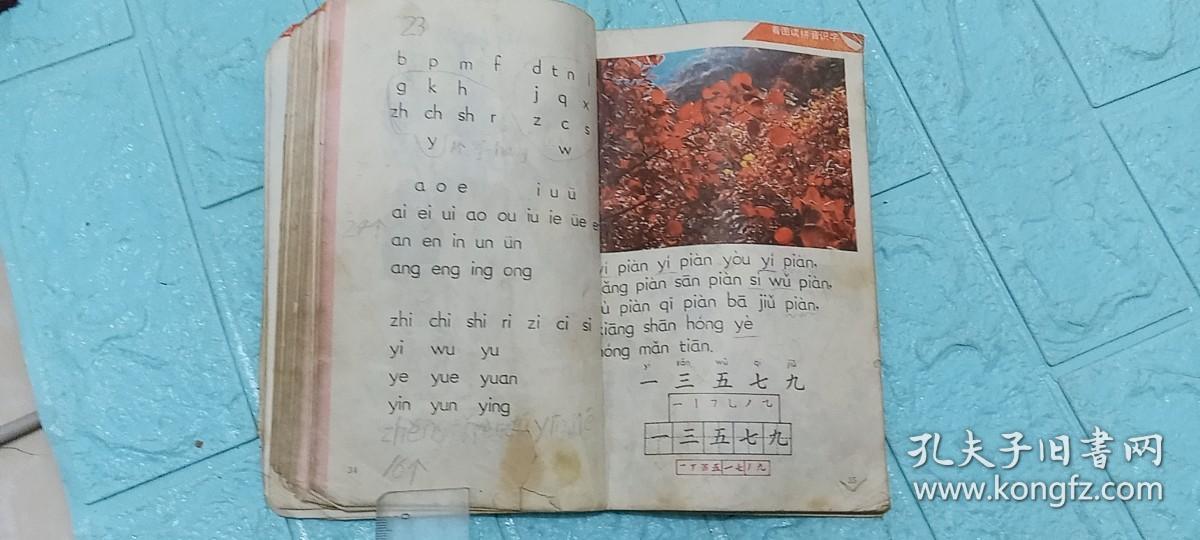 23
b p m f d t n l
g k h j q x
zh ch sh r z c s
y w
a o e i u ü
ai ei ui ao ou iu ie üe
an en in un ün
ang eng ing ong
zhi chi shi ri zi ci si
yi wu yu
ye yue yuan
yin yun ying
16个
34
看图读拼音识字
yí piàn yí piàn yòu yí piàn,
piàn sān piàn sì wǔ piàn,
piàn qī piàn bā jiǔ piàn,
xiāng shān hóng yè
hóng mǎn tiān.
yī sān wǔ qī jiǔ
一 三 五 七 九
一 三 五 七 九
35
孔夫子旧书网
www.kongfz.com